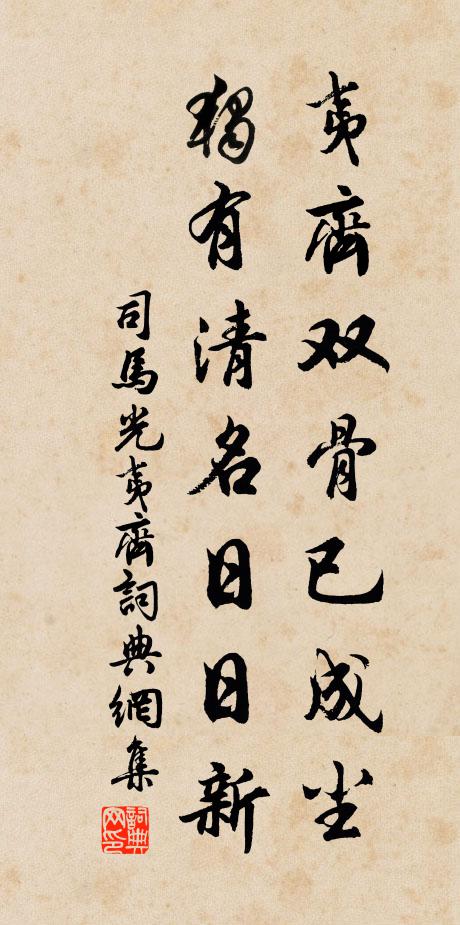 夷齊双骨已成尘
独有清名日日新
司馬光夷齊詞典網集
詞典网印